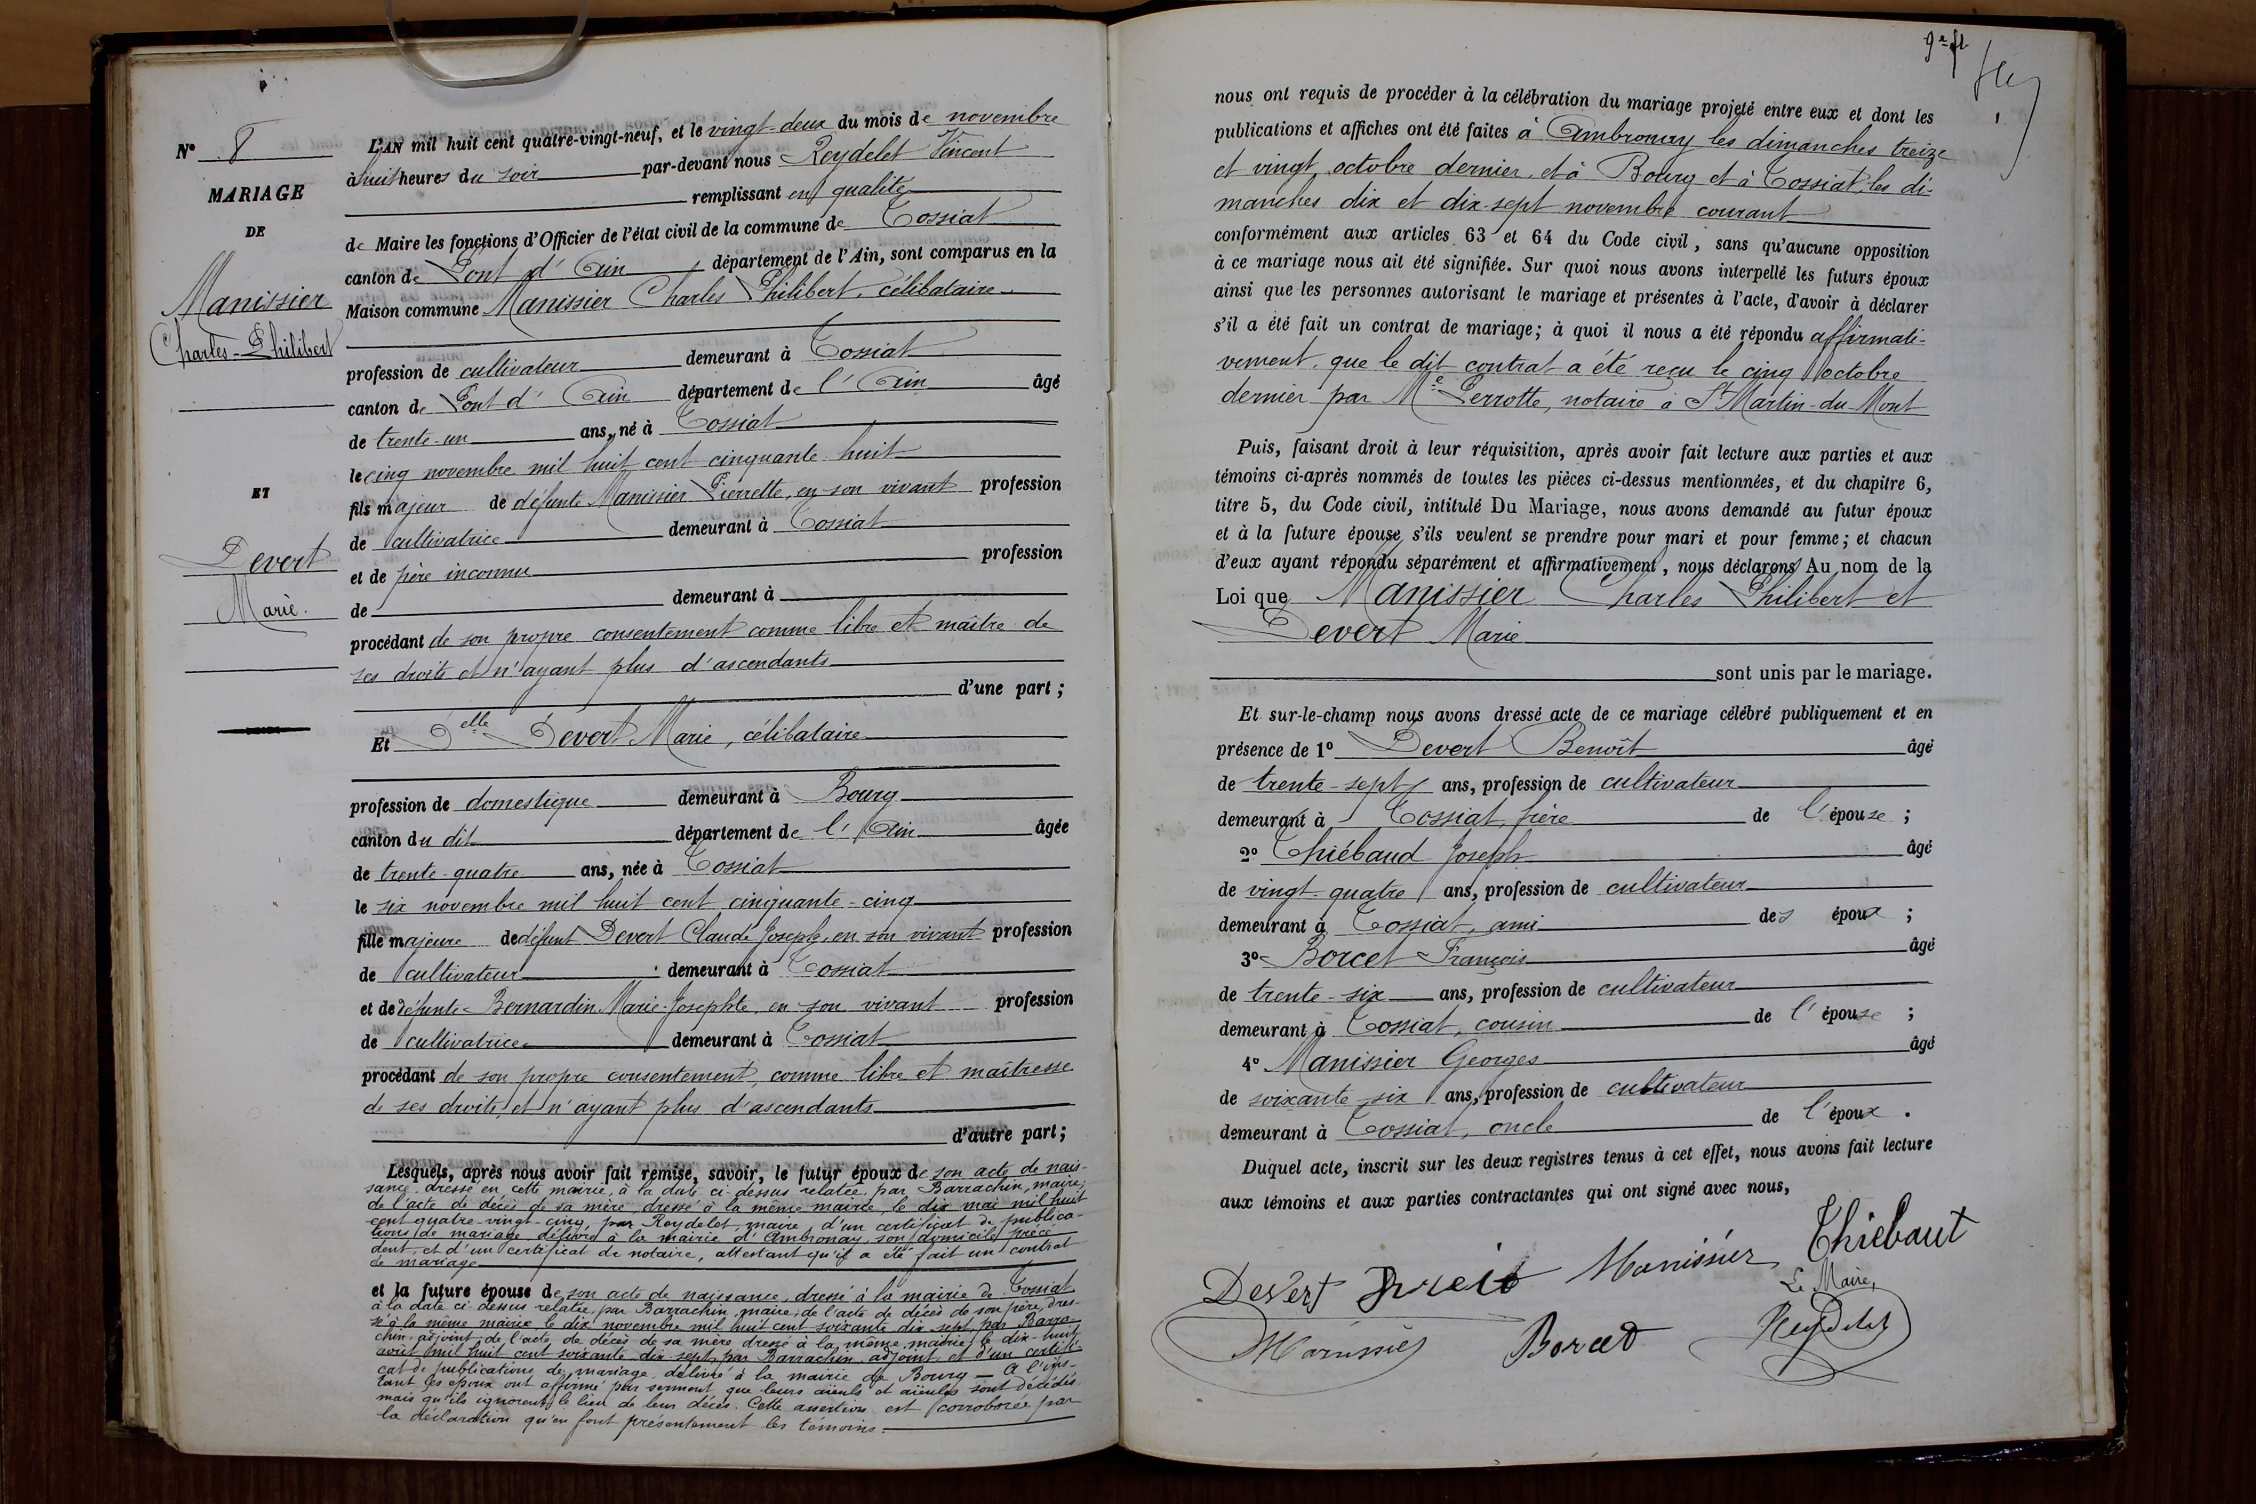 N° 8
MARIAGE
DE
Manissier
Charles-Philibert
ET
Devert
Marie.
L'AN mil huit cent quatre-vingt-neuf, et le vingt-deux du mois de novembre
à huit heures du soir par-devant nous Reydelet Vincent
remplissant en qualité
de Maire les fonctions d'Officier de l'état civil de la commune de Tossiat
canton de Pont d'Ain département de l'Ain, sont comparus en la
Maison commune Manissier Charles Philibert, célibataire
profession de cultivateur demeurant à Tossiat
canton de Pont d'Ain département de l'Ain âgé
de trente-un ans, né à Tossiat
le cinq novembre mil huit cent cinquante-huit
fils majeur de défunte Manissier Pierrette, en son vivant profession
de cultivatrice demeurant à Tossiat
et de père inconnu profession
de demeurant à
procédant de son propre consentement comme libre et maître de
ses droits et n'ayant plus d'ascendants
d'une part ;
Et Delle Devert Marie, célibataire
profession de domestique demeurant à Bourg
canton du dit département de l'Ain âgée
de trente-quatre ans, née à Tossiat
le six novembre mil huit cent cinquante-cinq
fille majeure de défunt Devert Claude Joseph, en son vivant profession
de cultivateur demeurant à Tossiat
et de défunte Bernardin Marie-Josephte, en son vivant profession
de cultivatrice demeurant à Tossiat
procédant de son propre consentement, comme libre et maîtresse
de ses droits, et n'ayant plus d'ascendants
d'autre part ;
Lesquels, après nous avoir fait remise, savoir, le futur époux de son acte de nais-
sance dressé en cette mairie, à la date ci-dessus relatée, par Barrachin, maire;
de l'acte de décès de sa mère dressé à la même mairie le dix mai mil huit
cent quatre-vingt-cinq, par Reydelet, maire, d'un certificat de publica-
tions de mariage délivré à la mairie d'Ambronay, son domicile précé
dent, et d'un certificat de notaire, attestant qu'il a été fait un contrat
de mariage
et la future épouse de son acte de naissance, dressé à la mairie de Tossiat
à la date ci-dessus relatée, par Barrachin, maire; de l'acte de décès de son père, dres-
sé à la même mairie le dix novembre mil huit cent soixante dix sept par Barra-
chin, adjoint, de l'acte de décès de sa mère dressé à la même mairie, le dix-huit
août mil huit cent soixante dix sept, par Barrachin, adjoint, et d'un certifi-
cat de publications de mariage délivré à la mairie de Bourg — A l'ins-
tant les époux ont affirmé par serment que leurs aïeuls et aïeules sont décédés
mais qu'ils ignorent le lieu de leur décès. Cette assertion est corroborée par
la déclaration qu'en font présentement les témoins.
nous ont requis de procéder à la célébration du mariage projeté entre eux et dont les
publications et affiches ont été faites à Ambronay les dimanches treize
et vingt octobre dernier, et à Bourg et à Tossiat, les di-
manches dix et dix-sept novembre courant
conformément aux articles 63 et 64 du Code civil, sans qu'aucune opposition
à ce mariage nous ait été signifiée. Sur quoi nous avons interpellé les futurs époux
ainsi que les personnes autorisant le mariage et présentes à l'acte, d'avoir à déclarer
s'il a été fait un contrat de mariage; à quoi il nous a été répondu affirmati-
vement, que le dit contrat a été reçu le cinq octobre
dernier par Me Perrotte, notaire à St Martin-du-Mont
Puis, faisant droit à leur réquisition, après avoir fait lecture aux parties et aux
témoins ci-après nommés de toutes les pièces ci-dessus mentionnées, et du chapitre 6,
titre 5, du Code civil, intitulé Du Mariage, nous avons demandé au futur époux
et à la future épouse s'ils veulent se prendre pour mari et pour femme; et chacun
d'eux ayant répondu séparément et affirmativement, nous déclarons Au nom de la
Loi que Manissier Charles Philibert et
Devert Marie
sont unis par le mariage.
Et sur-le-champ nous avons dressé acte de ce mariage célébré publiquement et en
présence de 1° Devert Benoît âgé
de trente-sept ans, profession de cultivateur
demeurant à Tossiat, frère de l'épouse ;
2° Thiébaud Joseph âgé
de vingt-quatre ans, profession de cultivateur
demeurant à Tossiat, ami des époux ;
3° Borcet François âgé
de trente-six ans, profession de cultivateur
demeurant à Tossiat, cousin de l'épouse ;
4° Manissier Georges âgé
de soixante-six ans, profession de cultivateur
demeurant à Tossiat, oncle de l'époux.
Duquel acte, inscrit sur les deux registres tenus à cet effet, nous avons fait lecture
aux témoins et aux parties contractantes qui ont signé avec nous,
Thiebaut
Manissier
Devert
Le Maire,
Manissier
Borcet
Reydelet